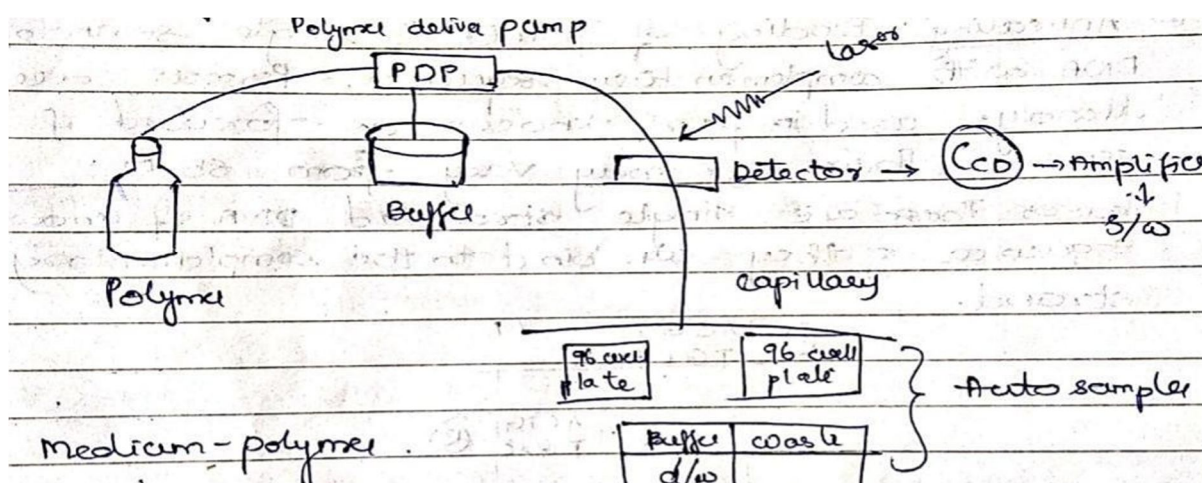 Polymer deliva pump
laser
PDP
Detector → CCD → Amplifier
↓
S/W
Buffer
Polymer
capillary
96 well plate
96 well plate
Auto sampler
Medium - polymer.
Buffer waste
d/w